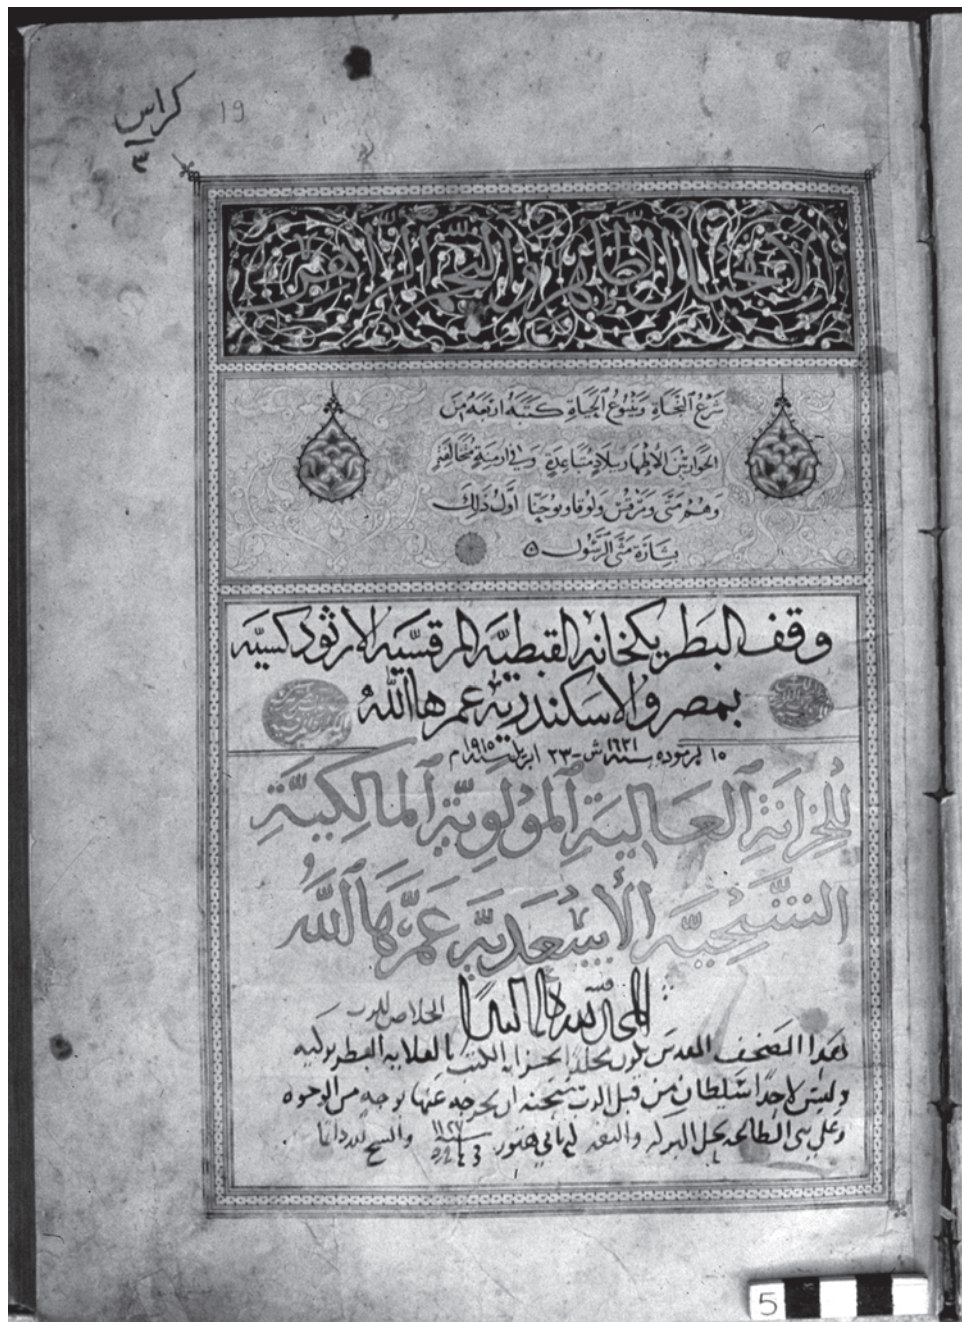 كراس
٣
19
الإنجيل الطاهر والنجم الزاهر
شرع النجاة وينبوع الحياة كتبه اربعة من
الحواريين الأطهار ببلاد متباعدة وفي ازمنة متخالفة
وهم متى ومرقس ولوقا ويوحنا اول ذلك
بشارة متى الرسول
وقف البطريكخانه القبطيّه المرقسيّه الارثودكسيّه
بمصر والاسكندريه عمرها الله
١٥ برموده سنة ١٦٣١ش - ٢٣ ابريل سنة ١٩١٥م
للخزانة العالية المولوية المالكية
الشيخية الأسعدية عمرها الله
الخلاص للرب
هدا المصحف المقدس يكون مخلدا بخزانة الكتب بالقلايه البطريركيه
وليس لاحدا سلطان من قبل الرب سبحنه ان يخرجه عنها بوجه من الوجوه
وعلى بنى الطاعه تحل البركه والنعمه
والسبح لله دائما
5